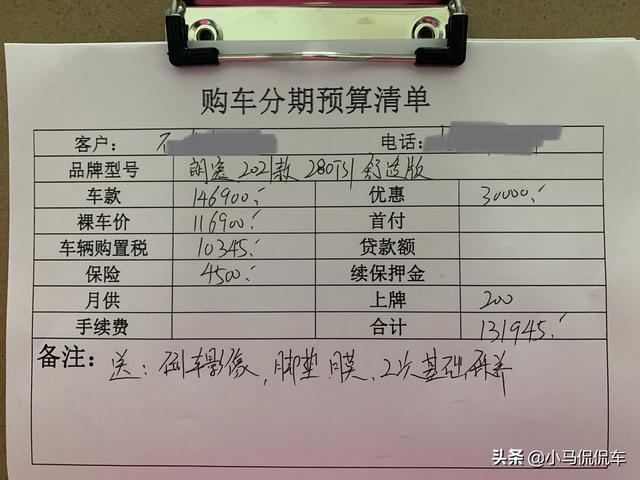 购车分期预算清单
客户： 电话：
品牌型号 朗逸 2021款 280TSI 舒适版
车款 146900.- 优惠 30000.-
裸车价 116900.- 首付
车辆购置税 10345.- 贷款额
保险 4500.- 续保押金
月供 上牌 200
手续费 合计 131945.-
备注：送：倒车影像，脚垫，膜，2次基础保养
头条 @小马侃侃车